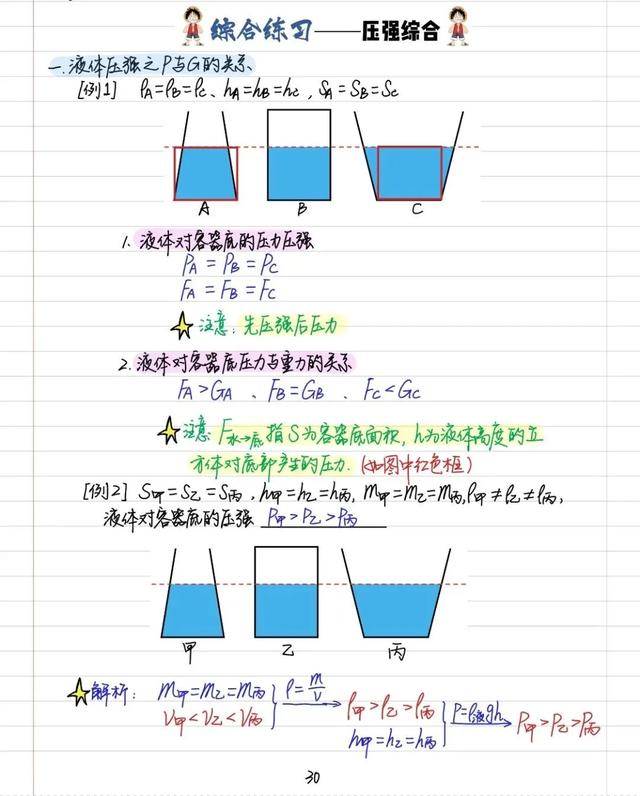 综合练习——压强综合
一.液体压强之P与G的关系
[例1] ρA=ρB=ρC、hA=hB=hC,SA=SB=SC
A B C
1.液体对容器底的压力压强
PA=PB=PC
FA=FB=FC
注意:先压强后压力
2.液体对容器底压力与重力的关系
FA>GA、FB=GB、FC<GC
注意:F水→底指S为容器底面积,h为液体高度的立
方体对底部产生的压力.(如图中红色框)
[例2] S甲=S乙=S丙,h甲=h乙=h丙,m甲=m乙=m丙,ρ甲≠ρ乙≠ρ丙,
液体对容器底的压强 P甲>P乙>P丙
甲 乙 丙
解析: m甲=m乙=m丙 ρ=m/V ρ甲>ρ乙>ρ丙 P=ρ液gh P甲>P乙>P丙
V甲<V乙<V丙 h甲=h乙=h丙
30